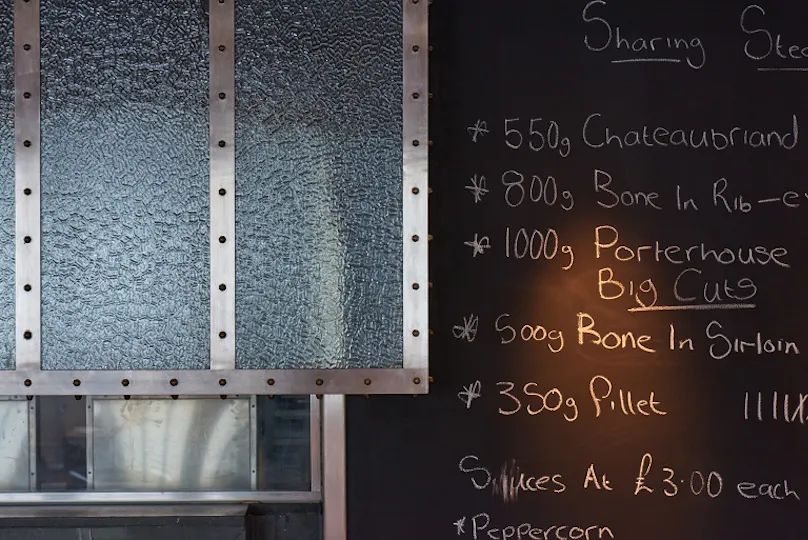 Sharing Stea
* 550g Chateaubriand
* 800g Bone In Rib-ey
* 1000g Porterhouse
Big Cuts
* 500g Bone In Sirloin
* 350g Fillet
Sauces At £3.00 each
* Peppercorn